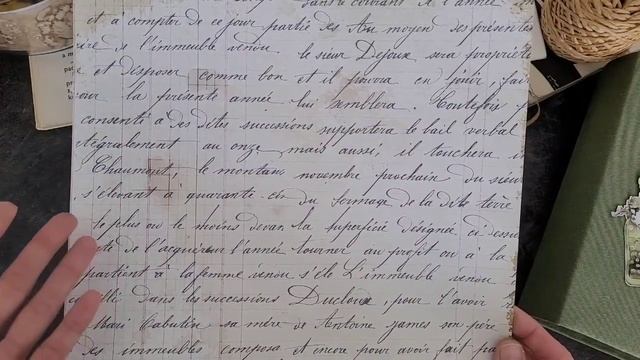 sans le courant de l'année
et à compter de ce jour partie des Au moyen des présentes
l'immeuble vendu. le sieur Dejoux sera propriéta
e et disposer comme bon et il pourra en jouir, fai
our la présente année lui semblera. Toutefois
consenté à des dites successions supportera le bail verbal
tégralement au onze mais aussi, il touchera in
Chaumont, le montant novembre prochain du sieur
s'élevant à quarante-cin du fermage de la dite terre
le plus ou le moins devan la superficie désignée ci dessu
té de l'acquéreur l'année tourner au profit ou à la
partient à la femme venou s'éle L'immeuble venou
dans les successions Ducloux, pour l'avoir
Mari Cabutin sa mère de Antoine James son père
des immeubles composa et encore pour avoir fait pa